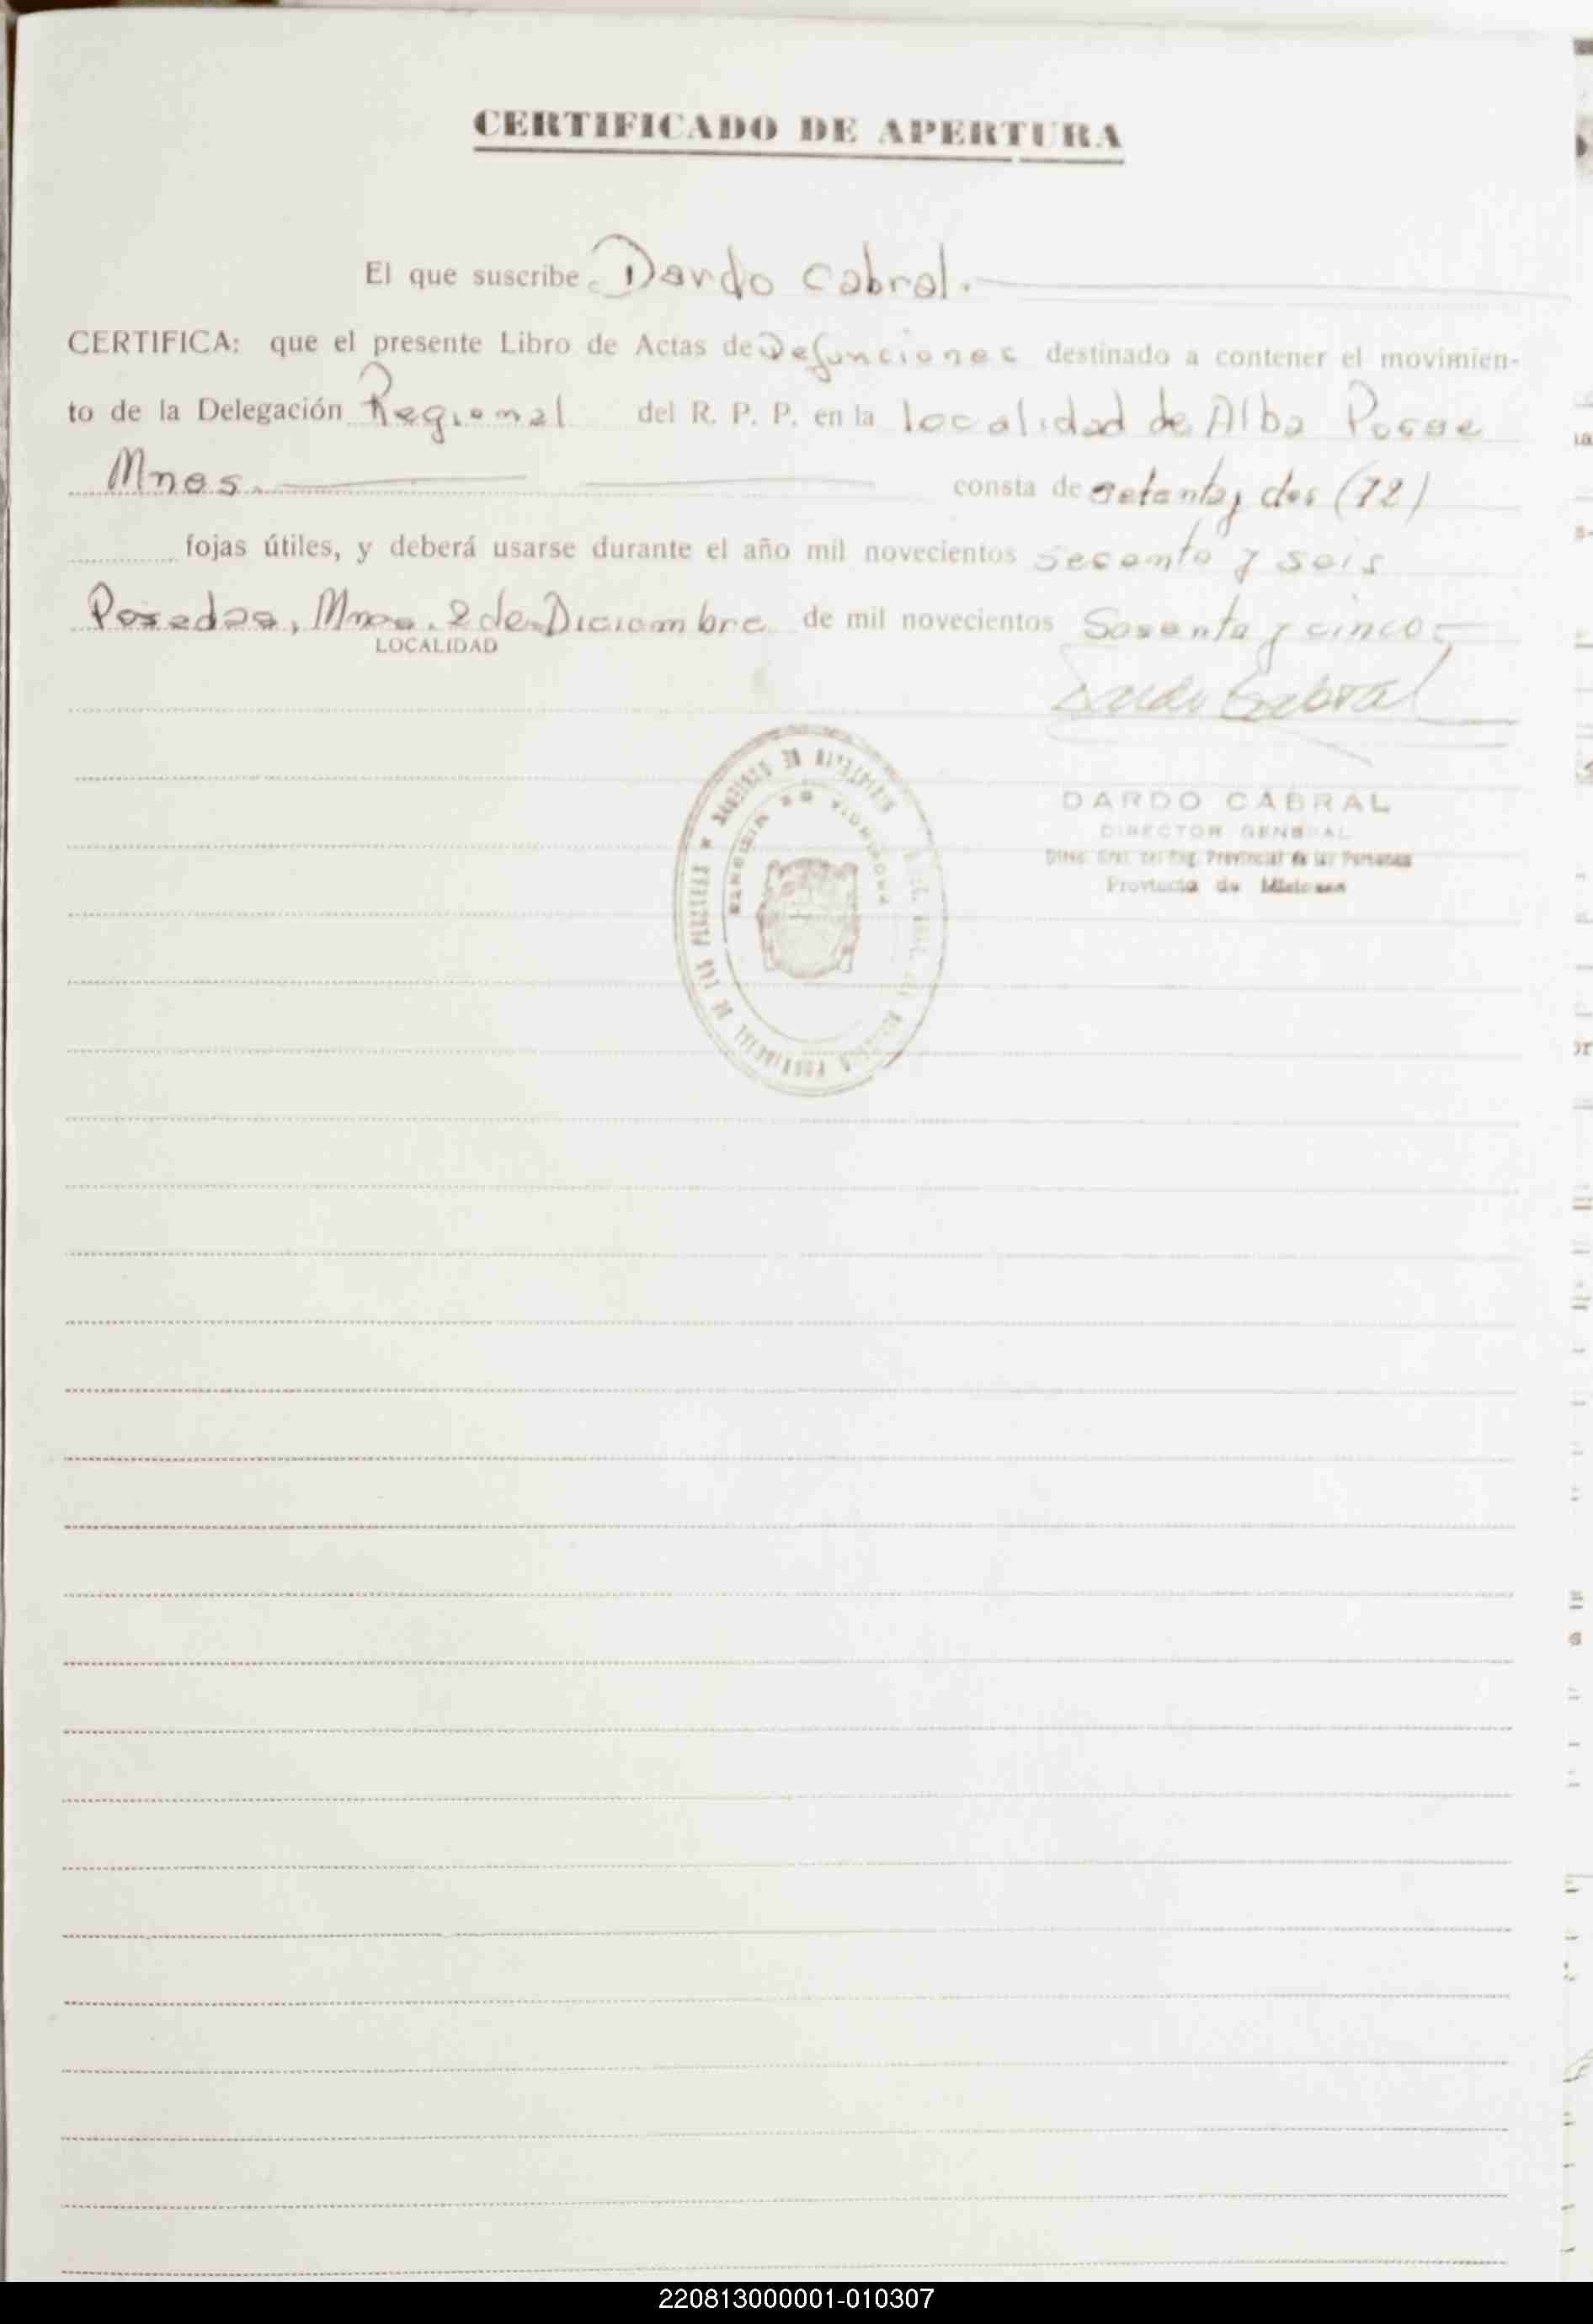 CERTIFICADO DE APERTURA
El que suscribe Dardo Cabral.
CERTIFICA: que el presente Libro de Actas de Defunciones destinado a contener el movimien-
to de la Delegación Regional del R. P. P. en la localidad de Alba Posse
Mnes. consta de setenta y dos (72)
fojas útiles, y deberá usarse durante el año mil novecientos Sesenta y seis
Posadas, Mnes. 2 de Diciembre de mil novecientos Sesenta y cinco
LOCALIDAD
Dardo Cabral
DARDO CABRAL
DIRECTOR GENERAL
Direc. Gral. del Reg. Provincial de las Personas
Provincia de Misiones
PROVINCIAL DE LAS PERSONAS
MISIONES
220813000001-010307